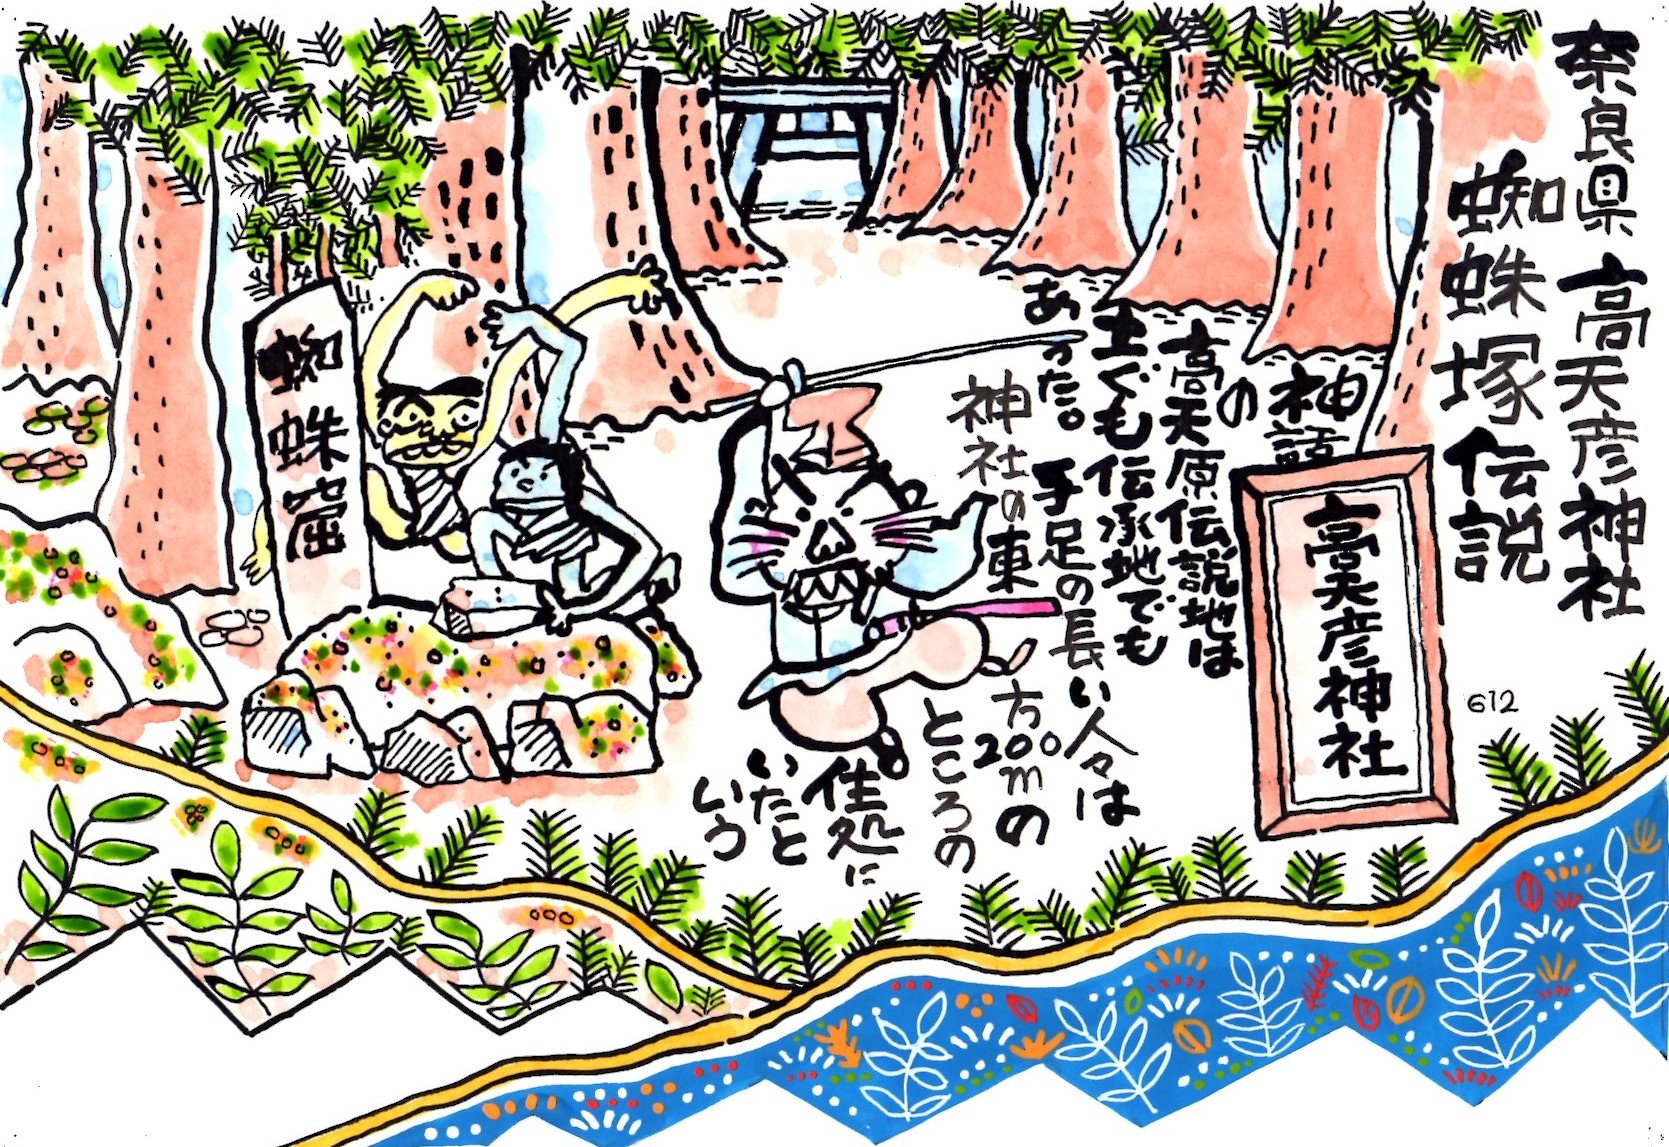 奈良県 高天彦神社
蜘蛛塚伝説
神話
の
高天原伝説地は
土ぐも伝承地でも
あった。手足の長い人々は
神社の東方200mの
ところの
住処に
いたと
いう
高天彦神社
612
蜘蛛窟